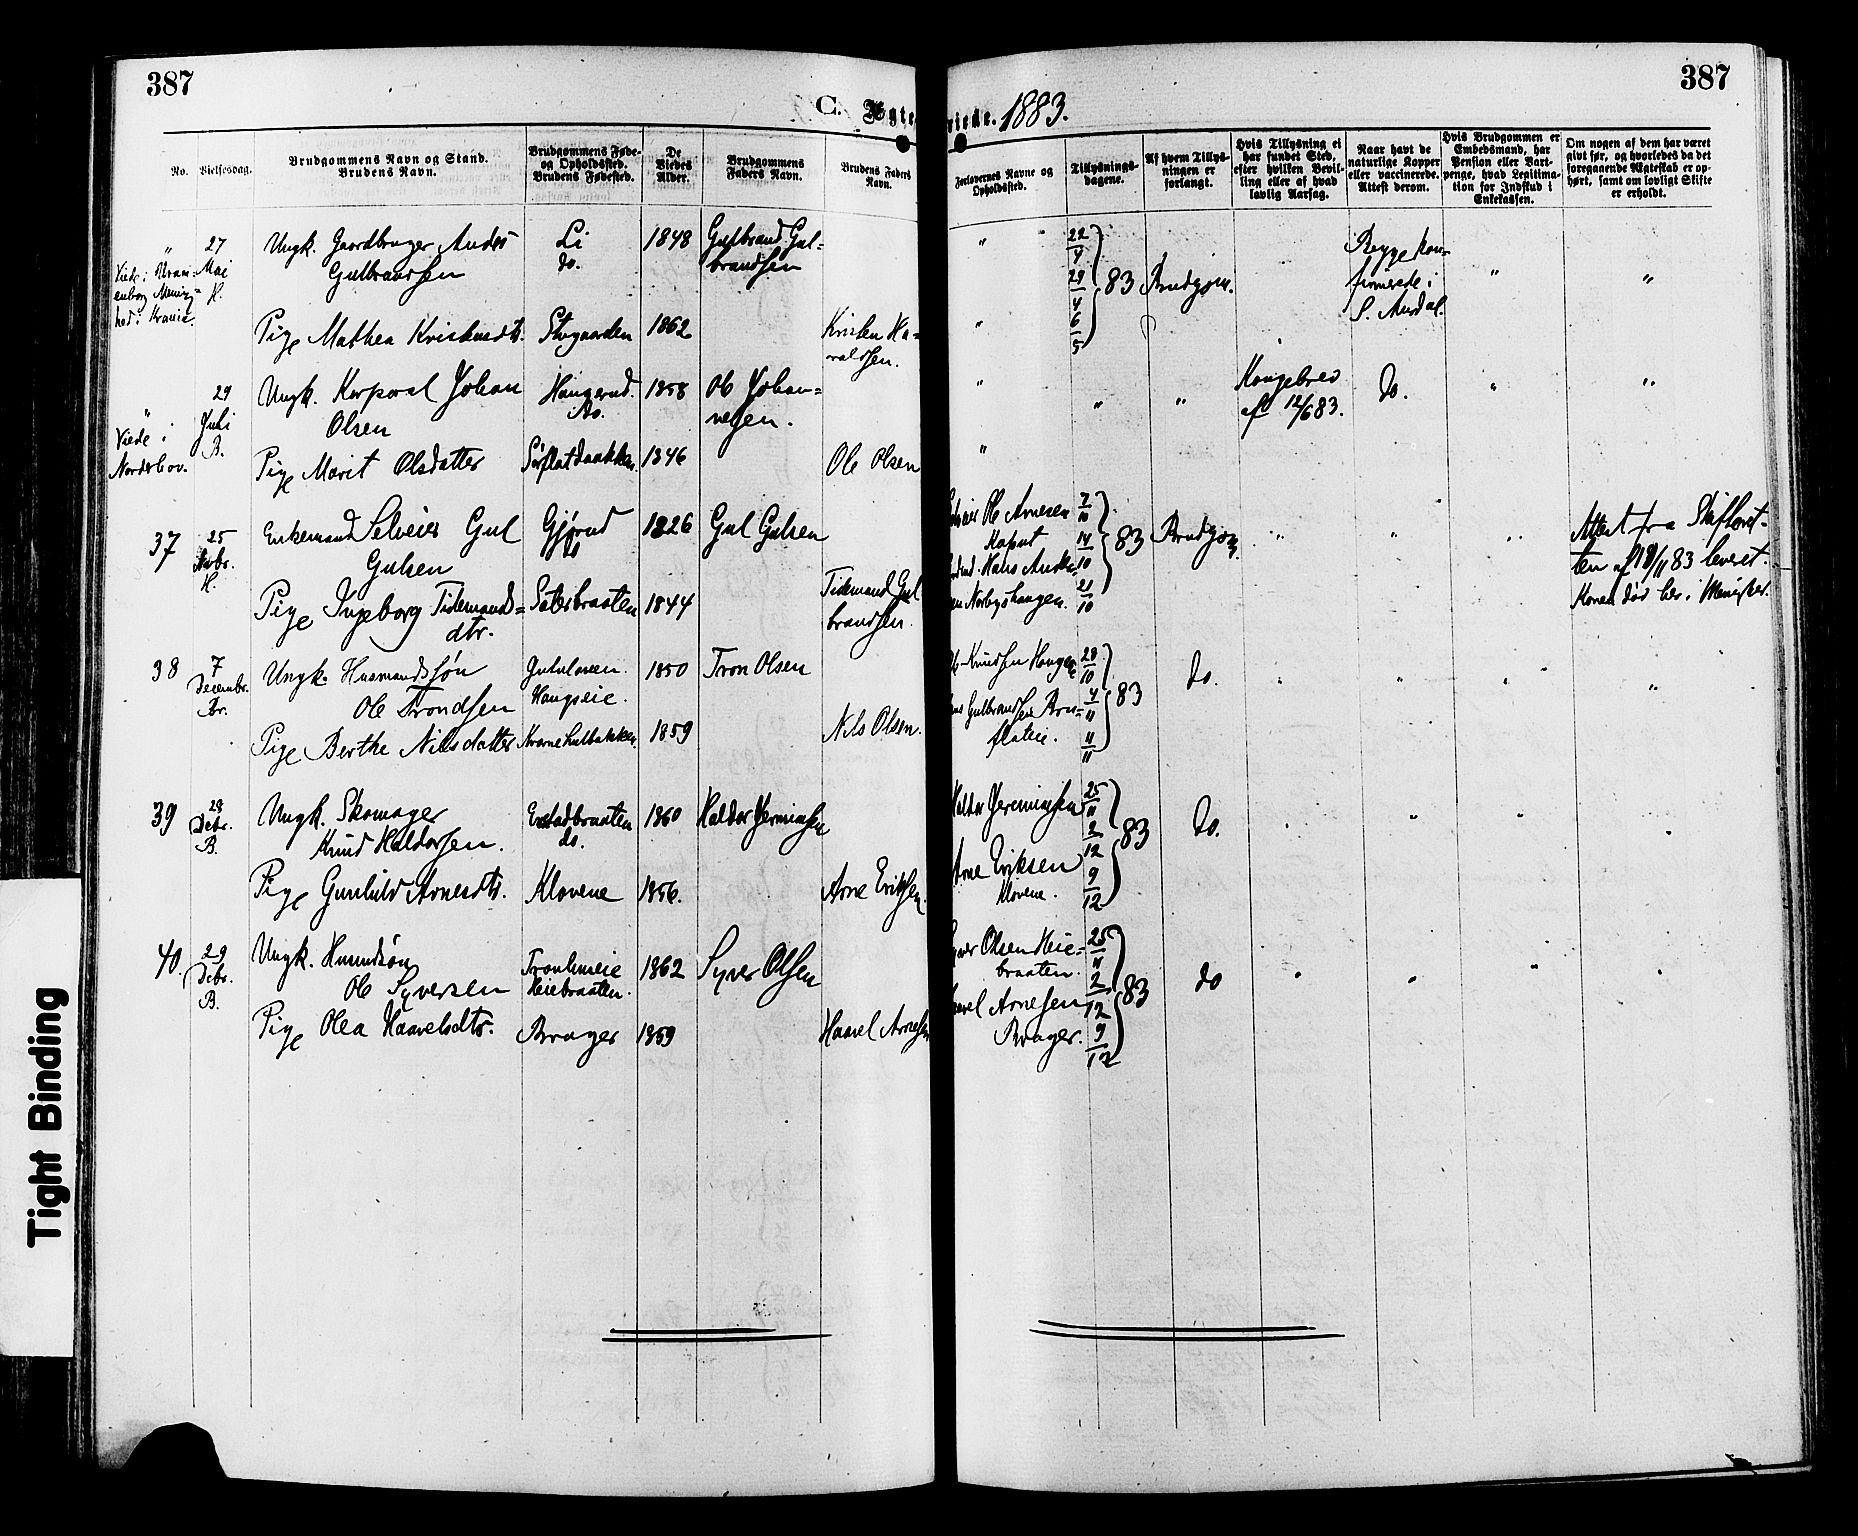 387
387
C. Ægte
viede. 1883.
No.
Vielsesdag.
Brudgommens Navn og Stand.
Brudens Navn.
Brudgommens Føde-
og Opholdssted.
Brudens Fødested.
De
Viedes
Alder.
Brudgommens
Faders Navn.
Brudens Faders
Navn.
Forlovernes Navne og
Opholdssted.
Tillysnings-
dagene.
Af hvem Tillys-
ningen er
forlangt.
Hvis Tillysning ei
har fundet Sted,
efter hvilken Bevil-
ling eller af hvad
lovlig Aarsag.
Naar havt de
naturlige Kopper
eller vaccinerede.
Attest derom.
Hvis Brudgommen er
Embedsmand, har
Pension eller Vart-
penge, hvad Legitima-
tion for Indskud i
Enkekassen.
Om nogen af dem har været
givt før, og hvorledes da det
foregaaende Ægteskab er op-
hørt, samt om lovligt Skifte
er erholdt.
"
Viede i Urani-
enborg Menig-
hed i Kra
27
Mai
H.
Ungk. Gaardbruger Anders
Gulbrandsen
Li
do.
1848
Gulbrand Gul-
brandsen
"
22/4
29/4
6/5
83
Brudgom.
Begge kon-
firmerede i
S. Aurdal.
"
"
Pige Mathea Kristensdtr.
Stugaarden
1862
Kristen Ha-
raldsen.
"
"
Viede i
Norderhov.
29
Juli
B.
Ungk. Korporal Johan
Olsen
Haugerud.
do.
1858
Ole Johan-
nesen.
"
"
"
Kongebrev
af 12/6 83.
do.
"
"
Pige Marit Olsdatter
1846
Ole Olsen
"
37
25
Novbr.
H.
Enkemand Selveier Gul
Gulsen
Gjørud
do
1826
Gul Gulsen
Ole Arnesen
Kaput
Hans Anders-
sen Norbyhaugen.
7/10
14/10
21/10
83
Brudgom.
"
"
"
Attest fra Skifteret-
ten af 19/11 83 leveret.
Konen død her i Menigh.
Pige Ingeborg Tidemands-
dtr.
Sæterbraaten
1844
Tidemand Gul
brandsen.
38
7
Decembr.
Br.
Ungk. Husmandssøn
Ole Trondsen
Haugseie.
1850
Tron Olsen
Knudsen Haug
Gulbrandsen Bru-
flateie.
28/10
4/11
11/11
83
do.
"
"
"
"
Pige Berthe Nilsdatter
1859
Nils Olsen.
39
28
Decbr.
B.
Ungk. Skomager
Knud Haldorsen.
Enstadbraaten
do.
1860
Haldor Jermiasen
Haldor Jeremiasen
Arne Eriksen
Klovene.
25/11
2/12
9/12
83
do.
"
"
"
"
Pige Gunhild Arnesdtr.
Klovene
1856.
Arne Eriksen
40.
29
Decbr.
B.
Ungk. Husmdsøn
Ole Syversen
Tronhuseie
Heiebraaten.
1862
Syver Olsen
Syver Olsen Heie-
braaten.
Haavel Arnesen
Brager.
25/11
2/12
9/12
83
do
"
"
"
"
Pige Olea Haavelsdtr.
Brager
1859
Haavel Arnesen
Tight Binding